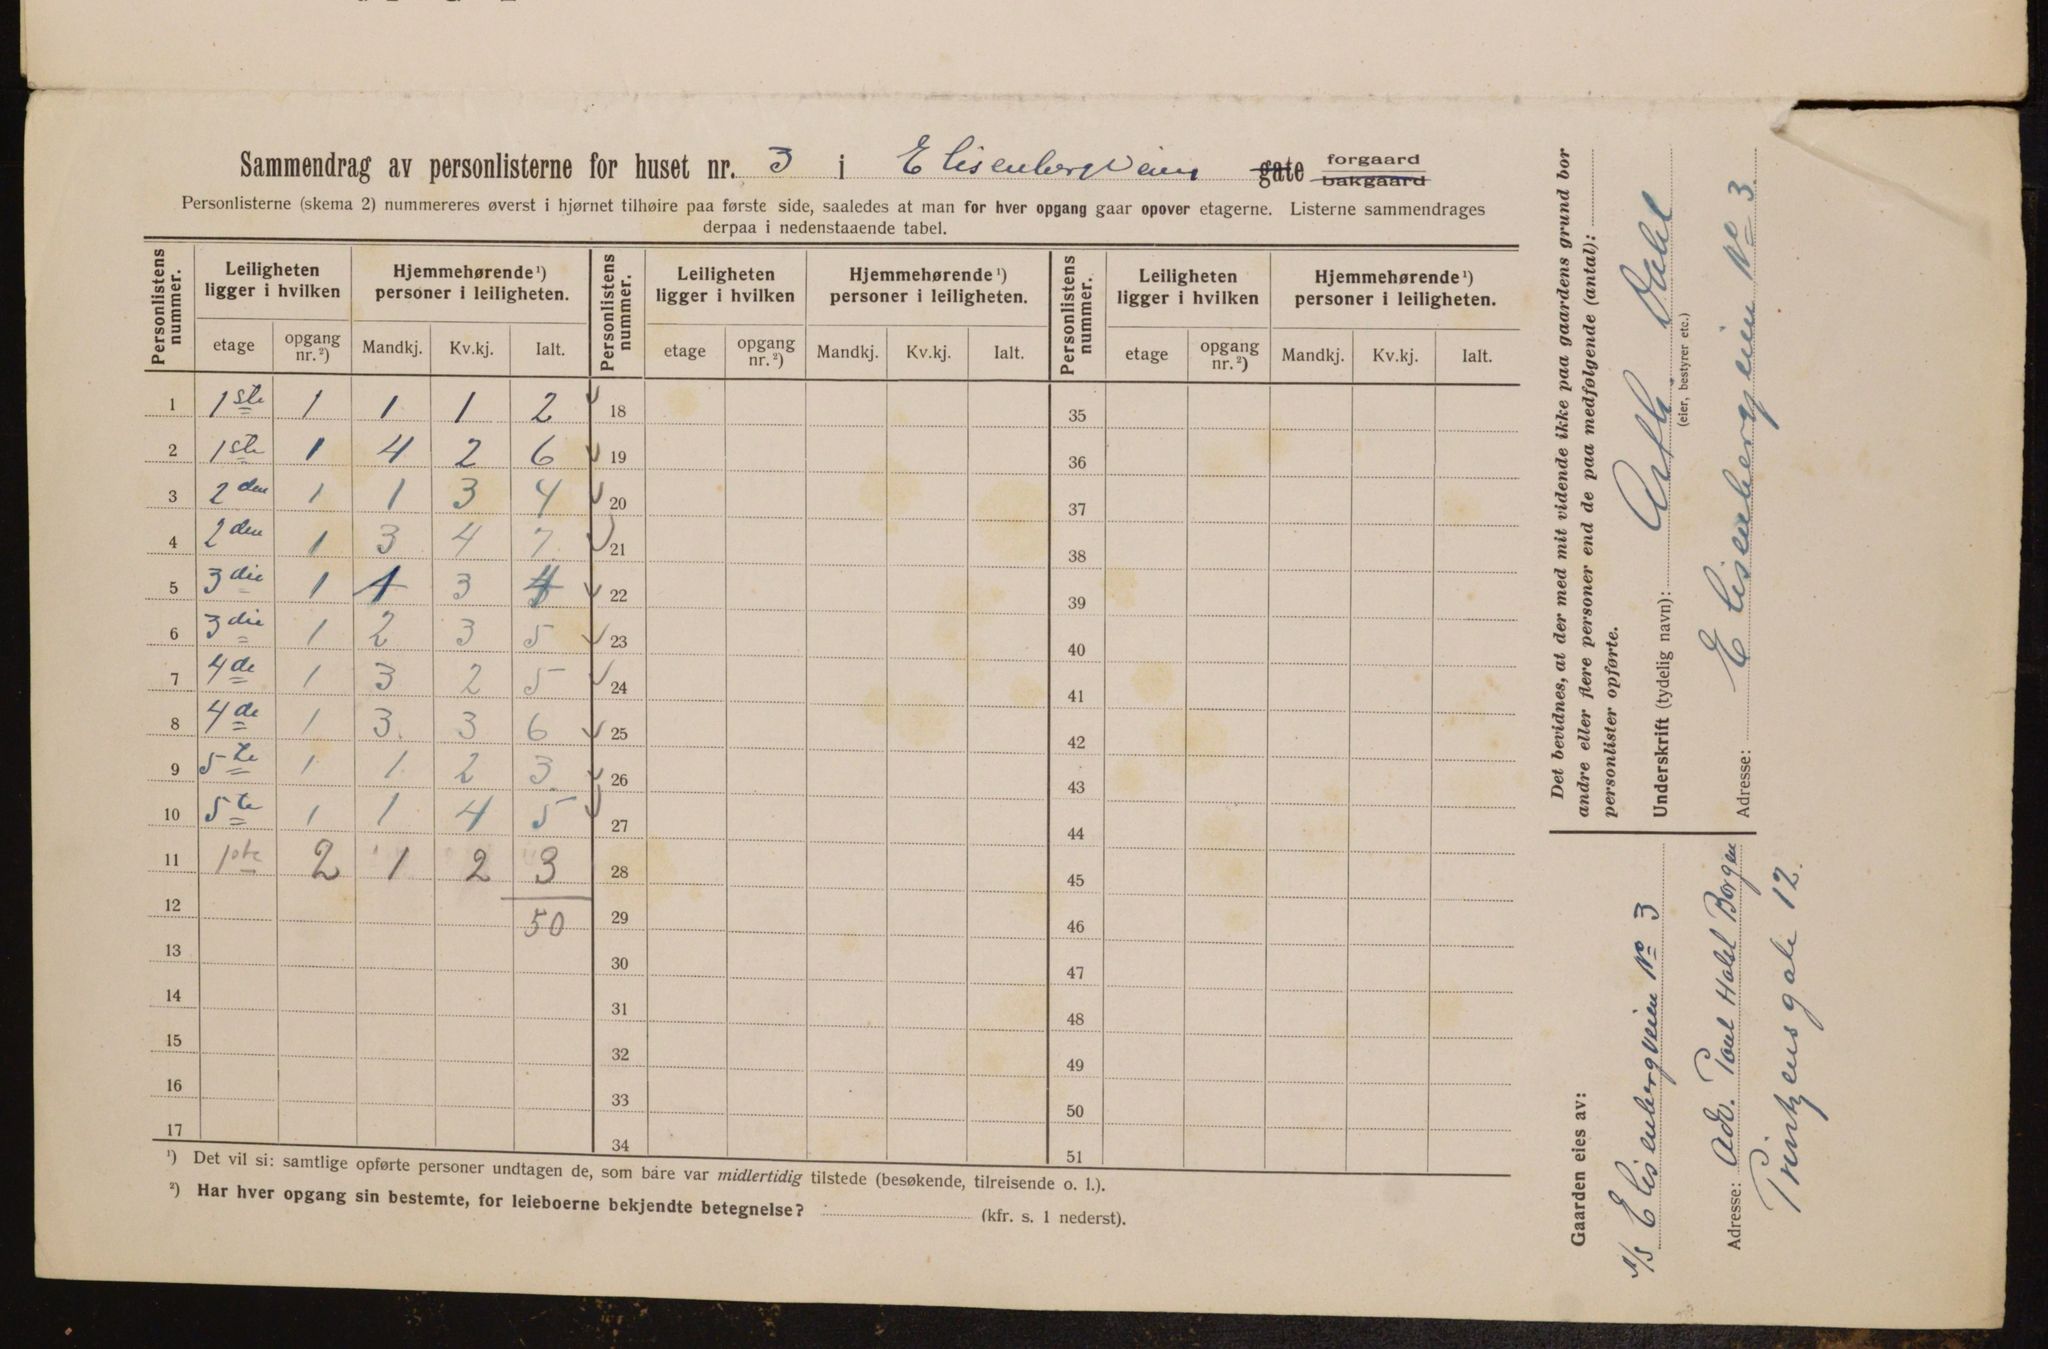 Sammendrag av personlisterne for huset nr. 3 i Elisenbergveien gate forgaard bakgaard
Personlisterne (skema 2) nummereres øverst i hjørnet tilhøire paa første side, saaledes at man for hver opgang gaar opover etagerne. Listerne sammendrages
derpaa i nedenstaaende tabel.
Personlistens nummer. Leiligheten ligger i hvilken Hjemmehørende¹) personer i leiligheten. Personlistens nummer. Leiligheten ligger i hvilken Hjemmehørende¹) personer i leiligheten. Personlistens nummer. Leiligheten ligger i hvilken Hjemmehørende¹) personer i leiligheten.
etage opgang nr.²) Mandkj. Kv.kj. Ialt. etage opgang nr.²) Mandkj. Kv.kj. Ialt. etage opgang nr.²) Mandkj. Kv.kj. Ialt.
1 1ste 1 1 1 2 18 35
2 1ste 1 4 2 6 19 36
3 2den 1 1 3 4 20 37
4 2den 1 3 4 7 21 38
5 3die 1 1 3 4 22 39
6 3die 1 2 3 5 23 40
7 4de 1 3 2 5 24 41
8 4de 1 3 3 6 25 42
9 5te 1 1 2 3 26 43
10 5te 1 1 4 5 27 44
11 1ste 2 1 2 3 28 45
12 50 29 46
13 30 47
14 31 48
15 32 49
16 33 50
17 34 51
¹) Det vil si: samtlige opførte personer undtagen de, som bare var midlertidig tilstede (besøkende, tilreisende o. l.).
²) Har hver opgang sin bestemte, for leieboerne bekjendte betegnelse? (kfr. s. 1 nederst).
Det bevidnes, at der med mit vidende ikke paa gaardens grund bor
andre eller flere personer end de paa medfølgende (antal):
personlister opførte.
Underskrift (tydelig navn): Dahl
(eier, bestyrer etc.)
Adresse: Elisenbergveien No 3.
Gaarden eies av:
A/S Elisenbergveien No 3
Adresse: Adv. Poul Holst Borgen
Printzensgate 12.